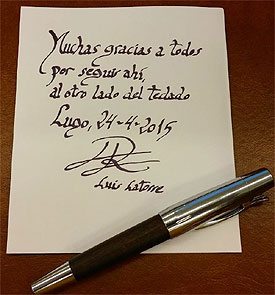 Muchas gracias a todos
por seguir ahí,
al otro lado del teclado
Lugo, 24-4-2015
Luis Latorre